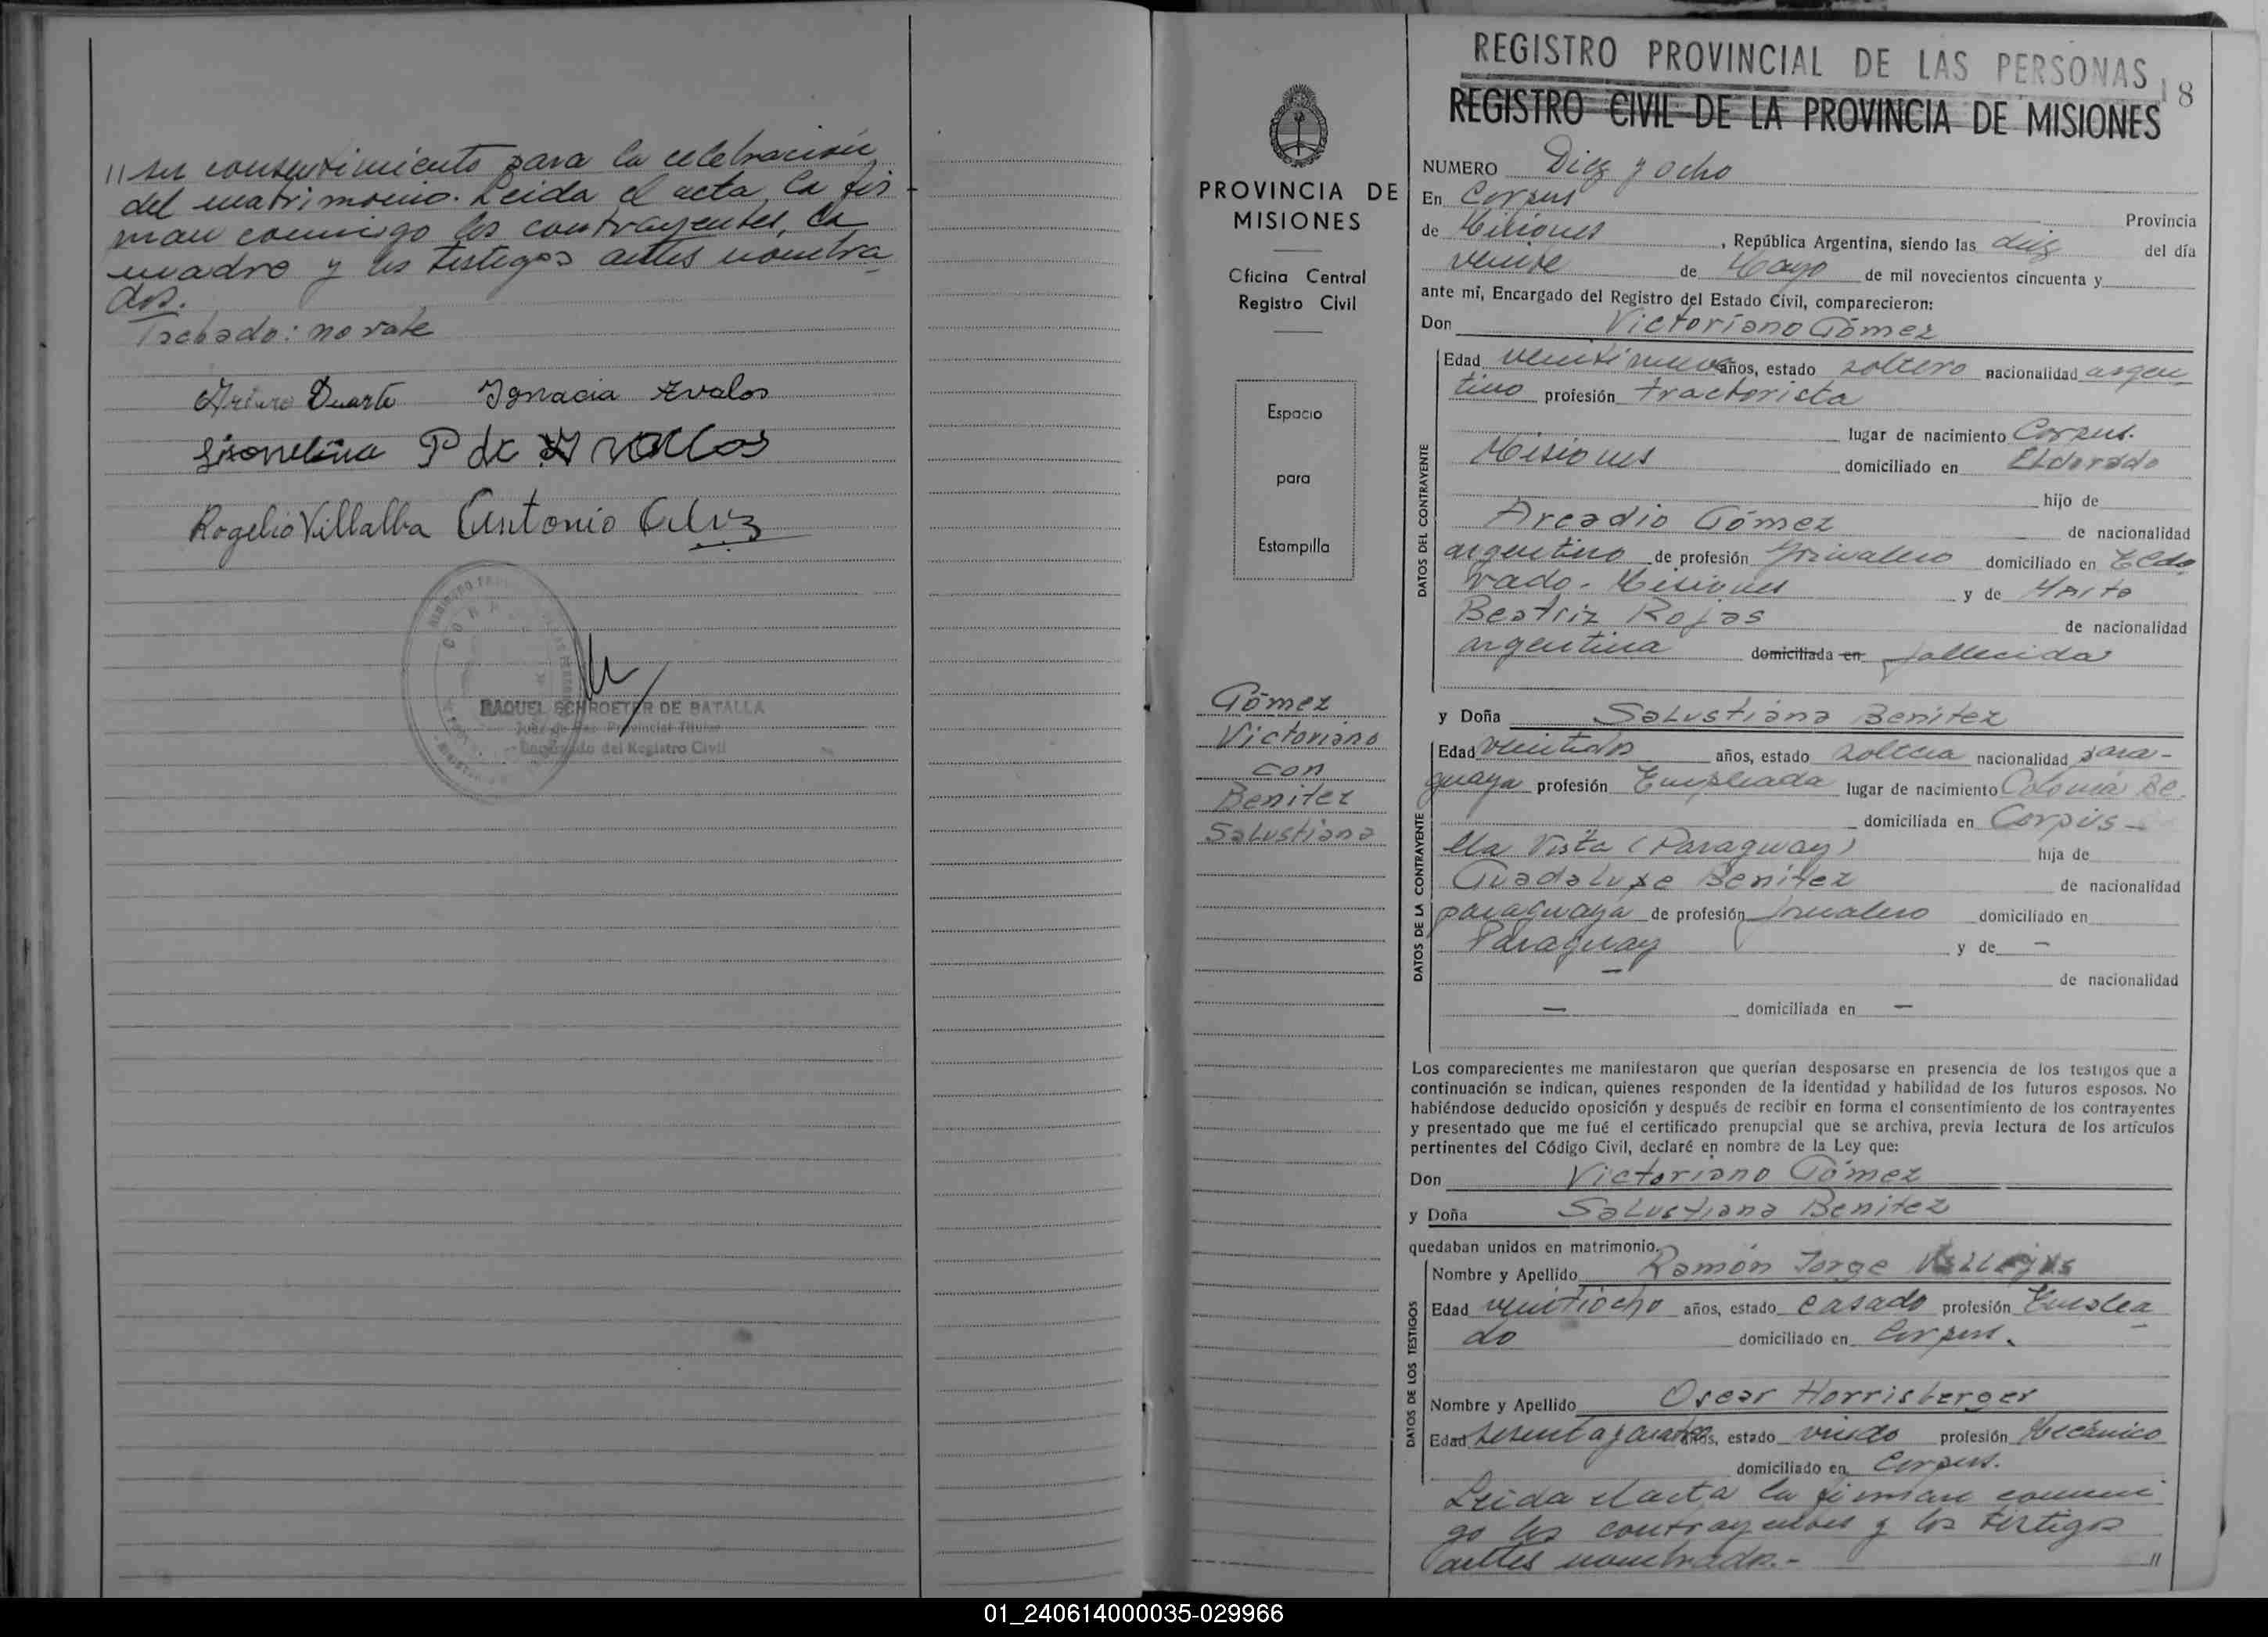 // su consentimiento para la celebración
del matrimonio. Leida el acta, la fir-
man conmigo los contrayentes, la
madre y los testigos antes nombra-
dos.
Tachado: no vale
Arturo Duarte Ignacia Avalos
P de Avallos
Rogelio Villalba Antonio
RAQUEL SCHROETER DE BATALLA
Juez de Paz Provincial Titular
Encargado del Registro Civil
PROVINCIA DE
MISIONES
Oficina Central
Registro Civil
Espacio
para
Estampilla
Gómez
Victoriano
con
Benitez
Salustiana
REGISTRO PROVINCIAL DE LAS PERSONAS
18
REGISTRO CIVIL DE LA PROVINCIA DE MISIONES
NUMERO Diez y ocho
En Corpus Provincia
de Misiones, República Argentina, siendo las diez del día
veinte de Mayo de mil novecientos cincuenta y
ante mí, Encargado del Registro del Estado Civil, comparecieron:
Don Victoriano Gómez
DATOS DEL CONTRAYENTE
Edad veintinueve años, estado soltero nacionalidad argen
tino profesión tractorista
lugar de nacimiento Corpus.
Misiones domiciliado en Eldorado
hijo de
Arcadio Gómez de nacionalidad
argentino de profesión jornalero domiciliado en Eldo
rado - Misiones y de
Beatriz Rojas de nacionalidad
argentina domiciliada en fallecida
y Doña Salustiana Benitez
DATOS DE LA CONTRAYENTE
Edad veintidos años, estado soltera nacionalidad para-
guaya profesión Empleada lugar de nacimiento Colonia Be
domiciliada en Corpus -
lla Vista (Paraguay) hija de
Guadalupe Benitez de nacionalidad
paraguaya de profesión jornalero domiciliado en
Paraguay y de —
— de nacionalidad
— domiciliada en —
Los comparecientes me manifestaron que querían desposarse en presencia de los testigos que a
continuación se indican, quienes responden de la identidad y habilidad de los futuros esposos. No
habiéndose deducido oposición y después de recibir en forma el consentimiento de los contrayentes
y presentado que me fué el certificado prenupcial que se archiva, previa lectura de los artículos
pertinentes del Código Civil, declaré en nombre de la Ley que:
Don Victoriano Gómez
y Doña Salustiana Benitez
quedaban unidos en matrimonio.
DATOS DE LOS TESTIGOS
Nombre y Apellido Ramón Jorge
Edad veintiocho años, estado casado profesión Emplea
do domiciliado en Corpus.
Nombre y Apellido Oscar Horrisberger
Edad sesenta y cuatro años, estado viudo profesión Mecánico
domiciliado en Corpus.
Leida el acta la firman conmi
go los contrayentes y los testigos
antes nombrados.- //
01_240614000035-029966